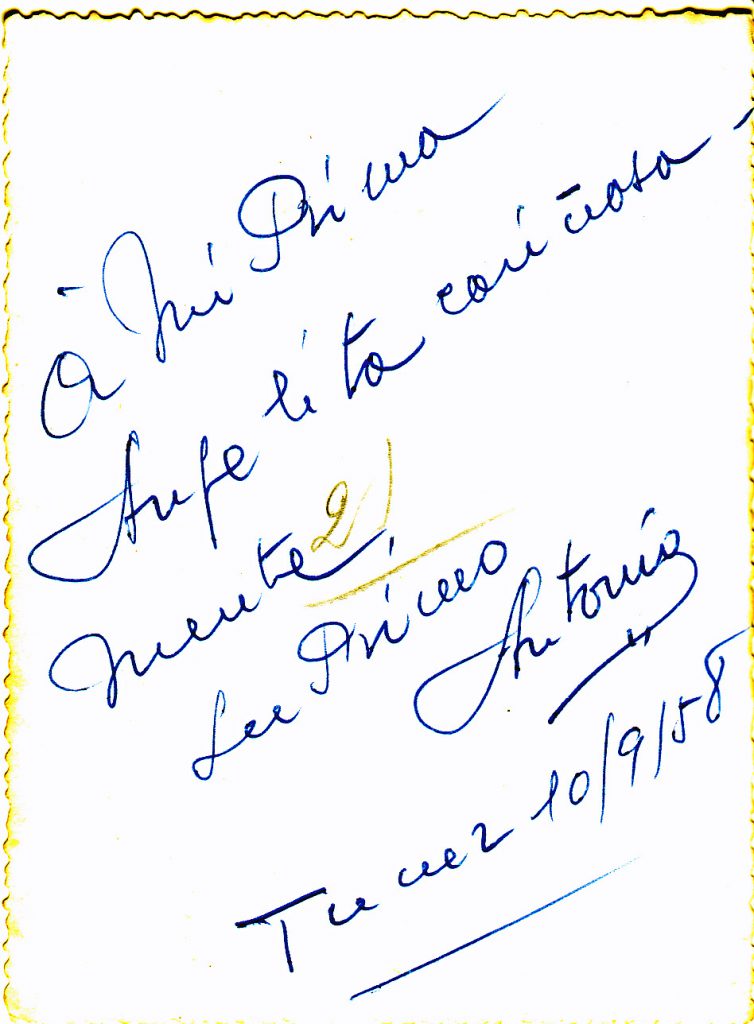 A mi Prima
Angelita cariñosa-
mente
2)
Su Primo Antonio
Tunez 10/9/58